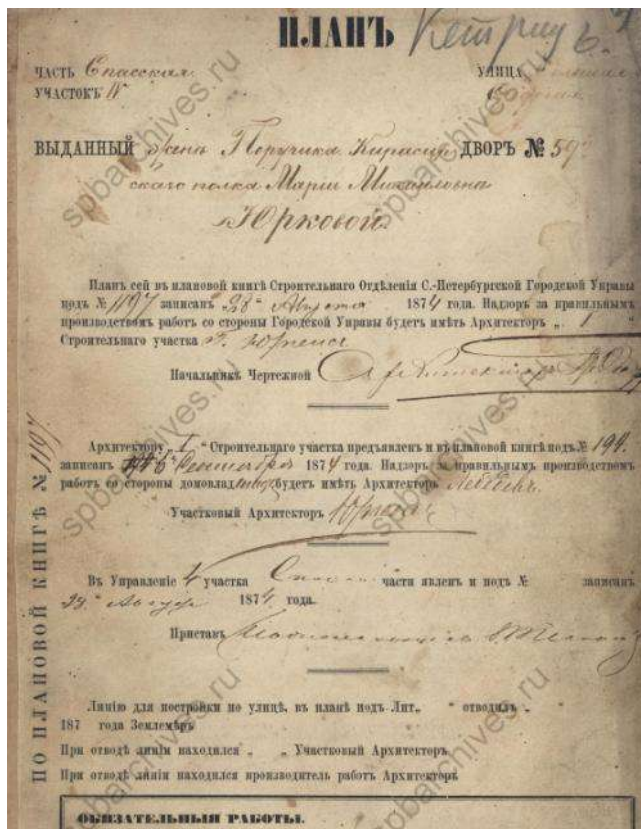 ПЛАНЪ
ЧАСТЬ Спасская УЛИЦА
УЧАСТОКЪ IV
ВЫДАННЫЙ Поручика Кирасир ДВОРЪ № 59
скаго полка Маріи Михайловна
Юрковой
Планъ сей въ плановой книгѣ Строительнаго Отдѣленія С.-Петербургской Городской Управы
подъ № 1197 записанъ 28 Августа 1874 года. Надзоръ за правильнымъ
производствомъ работъ со стороны Городской Управы будетъ имѣть Архитекторъ „ 1 “
Строительнаго участка
Начальникъ Чертежной
Архитектору „ I “ Строительнаго участка предъявленъ и въ плановой книгѣ подъ № 194.
записанъ Сентября 1874 года. Надзоръ за правильнымъ производствомъ
работъ со стороны домовладѣлицы будетъ имѣть Архитекторъ Лебедевъ.
Участковый Архитекторъ
Въ Управленіе 4 участка части явленъ и подъ № записанъ
Августа 1874 года.
Приставъ
Линію для постройки по улицѣ, въ планѣ подъ Лит. „ “ отводилъ
187 года Землемѣръ
При отводѣ линіи находился „ „ Участковый Архитекторъ
При отводѣ линіи находился производитель работъ Архитекторъ
ОБЯЗАТЕЛЬНЫЯ РАБОТЫ.
ПО ПЛАНОВОЙ КНИГѢ № 1197
spbarchives.ru